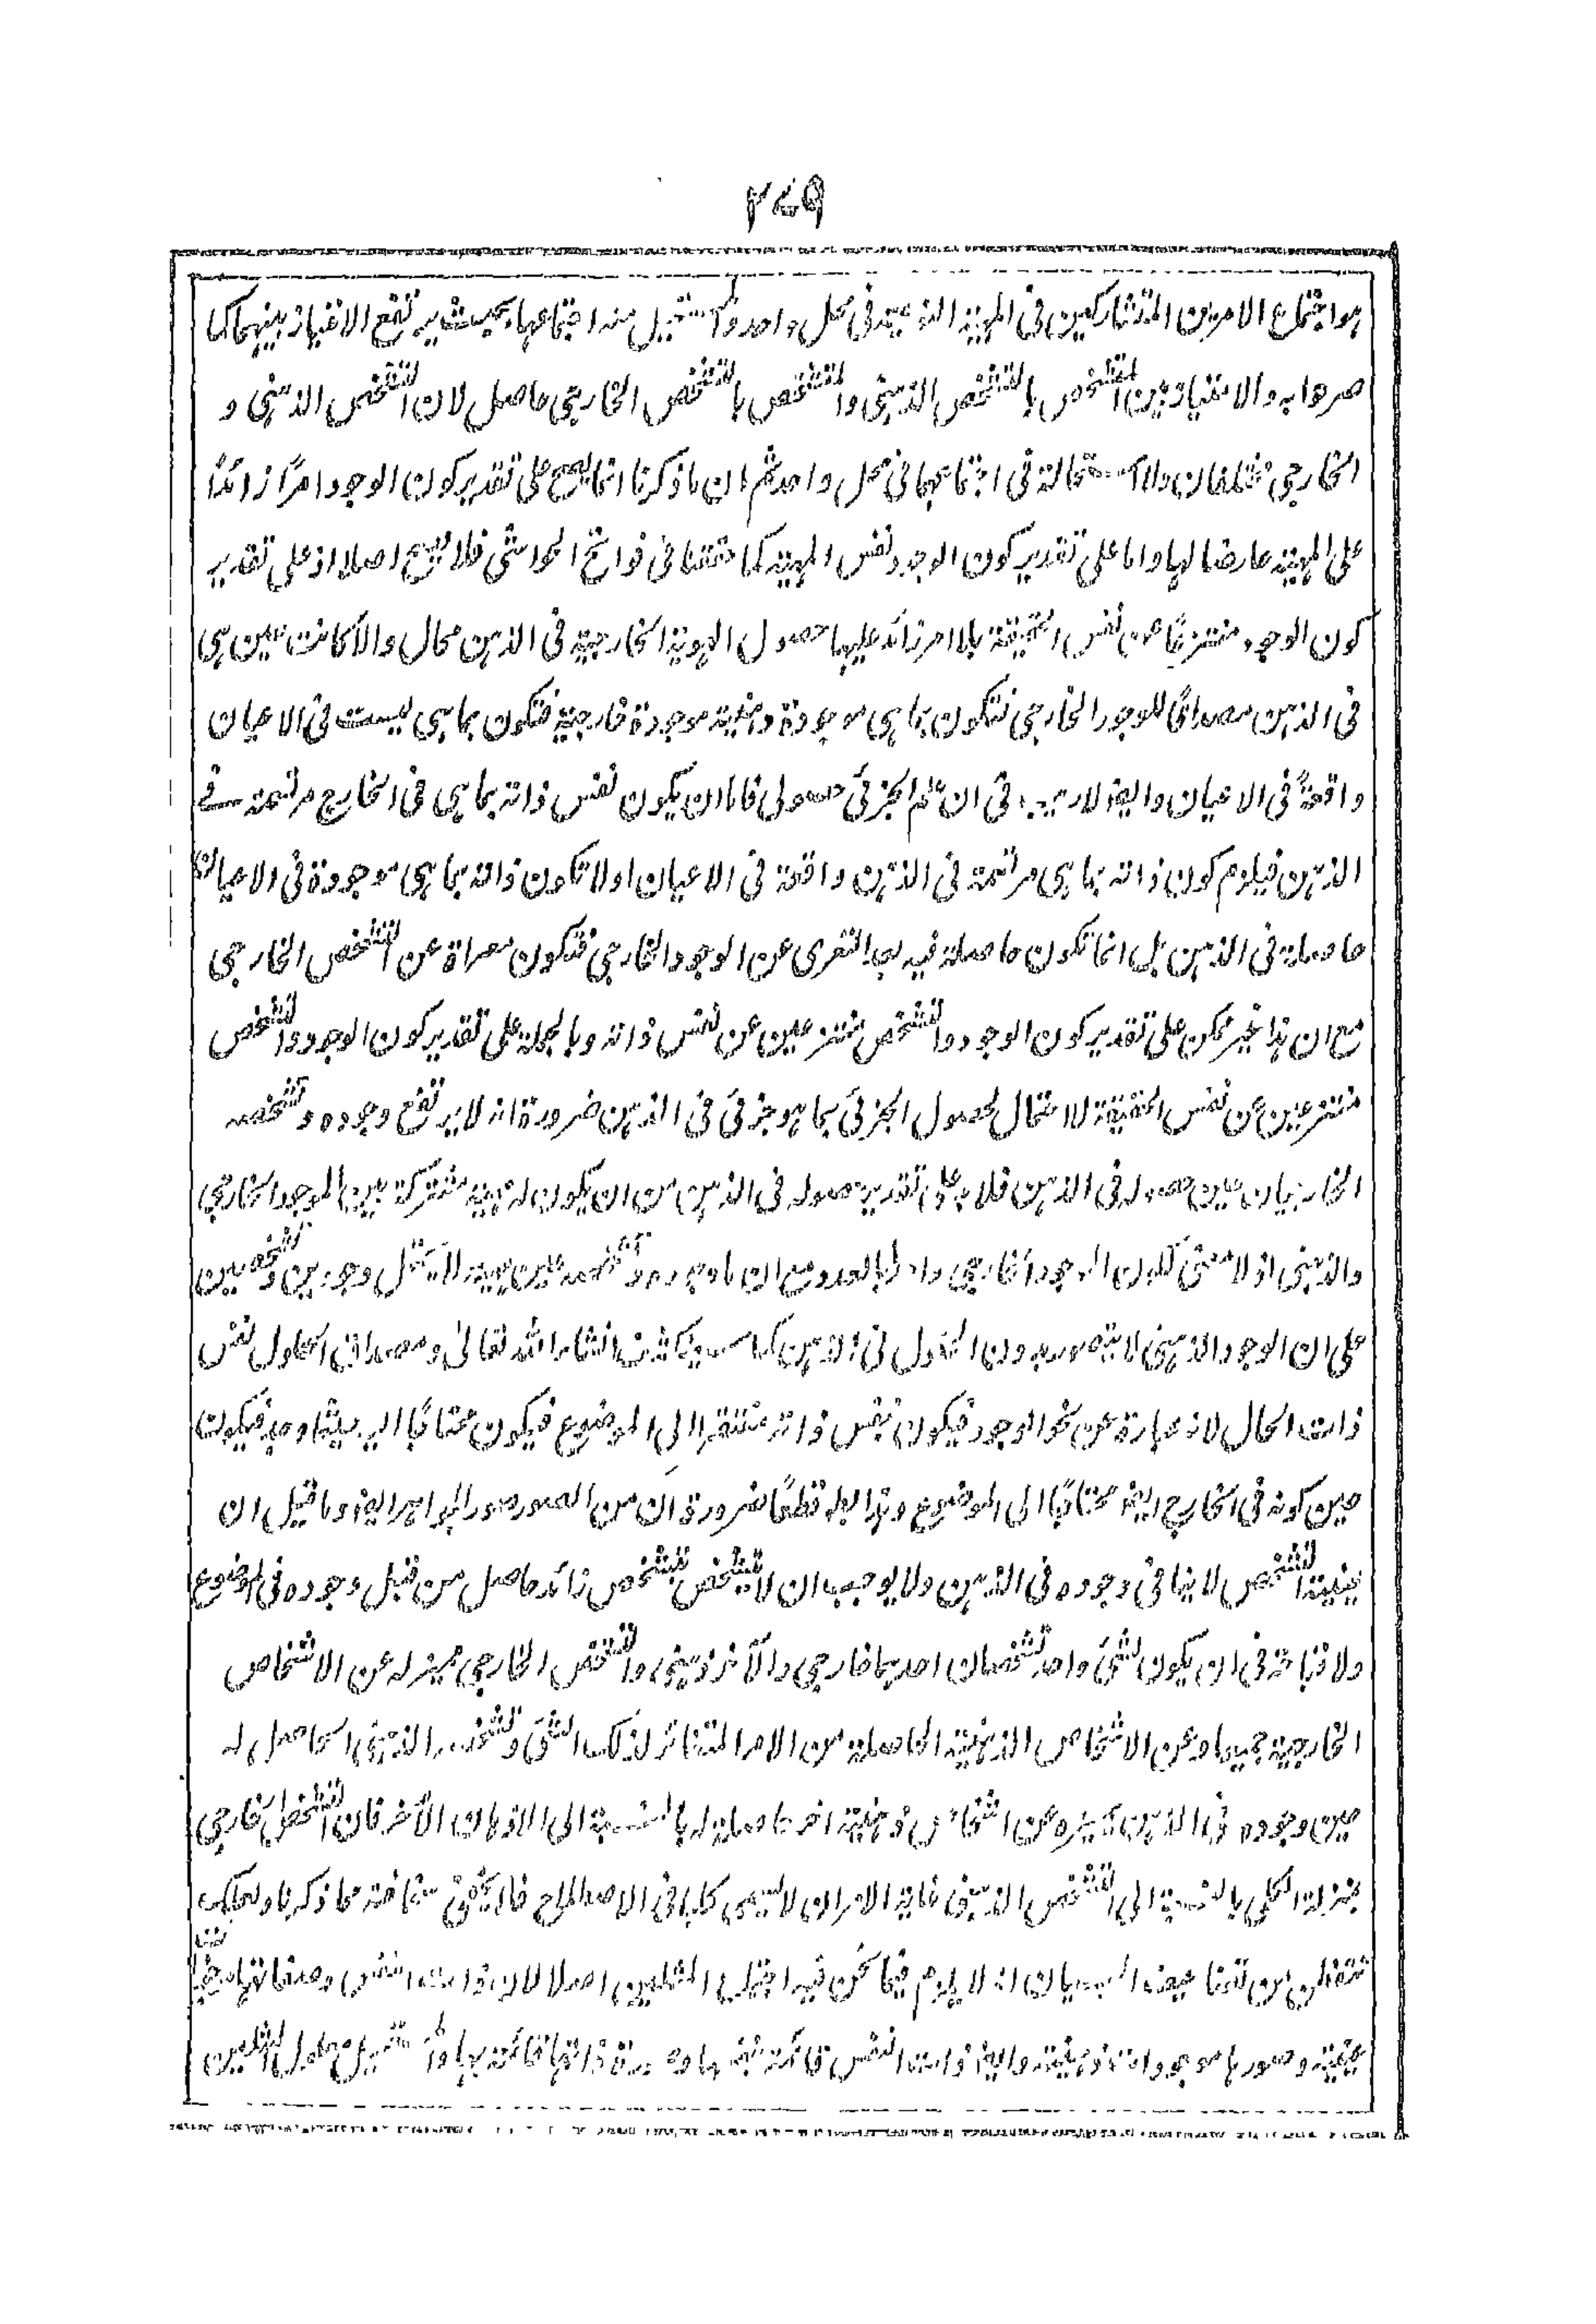 ٢٧٩
هو اجتماع الامرين المتشاركين في المهية النوعية في محل واحد والمستحيل منه اجتماعهما بحيث يرتفع الامتياز بينهما كما
صرحوا به والامتياز بين المتشخص بالتشخص الذهني والمتشخص بالتشخص الخارجي حاصل لان التشخص الذهني و
الخارجي مختلفان ولا استحالة في اجتماعهما في محل واحد ثم ان ما ذكرنا انما يصح على تقدير كون الوجود امرًا زائدًا
على المهية عارضا لها واما على تقدير كون الوجود نفس المهية كما حققنا في فواتح الحواشي فلا يصح اصلا اذ على تقدير
كون الوجود منتزعًا عن نفس الحقيقة بلا امر زائد عليها حصول الهوية الخارجية في الذهن محال والا كانت حين هي
في الذهن مصداقًا للوجود الخارجي فتكون بما هي موجودة ذهنية موجودة خارجية فتكون بما هي ليست في الاعيان
واقعةً في الاعيان وايضًا لا ريب في ان علم الجزئي حصولي فاما ان يكون نفس ذاته بما هي في الخارج مرتسمة في
الذهن فيلزم كون ذاته بما هي مرتسمة في الذهن واقعة في الاعيان او لا تكون ذاته بما هي موجودة في الاعيان
حاصلة في الذهن بل انما تكون حاصلة فيه بعد التعرى عن الوجود الخارجي فتكون معراة عن التشخص الخارجي
مع ان هذا غير ممكن على تقدير كون الوجود والتشخص منتزعين عن نفس ذاته وبالجملة على تقدير كون الوجود والتشخص
منتزعين عن نفس الحقيقة لا احتمال لحصول الجزئي بما هو جزئي في الذهن ضرورة انه لا يرتفع وجوده وتشخصه
الخارجيان حين حصوله في الذهن فلا بد على تقدير حصوله في الذهن من ان يكون له مهية مشتركة بين الموجود الخارجي
والذهني اذ لا معنى لكون الموجود الخارجي واحدًا بالعدد مع ان ما وجوده وتشخصه عين مهيته لا يحتمل وجودين وتشخصين
على ان الوجود الذهني لا يتصور بدون الحلول في الذهن كما سينكشف انشاء الله تعالى ومصداق الحلول نفس
ذات الحال لانه عبارة عن نحو الوجود فيكون نفس ذاته مفتقرا الى الموضوع فيكون محتاجًا اليه حيثما وجد فيكون
حين كونه في الخارج ايضًا محتاجًا الى الموضوع وهذا باطل قطعًا ضرورة ان من الصور صور الجواهر ايضًا وما قيل ان
عينية التشخص لا ينافي وجوده في الذهن ولا يوجب ان لا يتشخص بتشخص زائد حاصل من قبل وجوده في الموضوع
ولا قباحة في ان يكون لشئ واحد تشخصان احدهما خارجي والآخر ذهني والتشخص الخارجي مميز له عن الاشخاص
الخارجية جميعا وعن الاشخاص الذهنية الحاصلة من الامر المتغائر لذلك الشئ وتشخصه الذهني الحاصل له
حين وجوده في الذهن يميزه عن اشخاص ذهنية اخر حاصلة له بالنسبة الى الاذهان الأخر فان التشخص الخارجي
بمنزلة الكلي بالنسبة الى التشخص الذهني غاية الامر ان لا يسمى كليا في الاصطلاح فلا يخفى سخافته مما ذكرنا ولعلك
تتفطن من تضاعيف البيان انه لا يلزم فيما نحن فيه اجتماع المثلين اصلا لان ذات النفس وصفاتها
عينية وصورها موجودات ذهنية وايضًا ذات النفس قائمة بنفسها وصورة ذاتها قائمة بها والمستحيل حلول المثلين